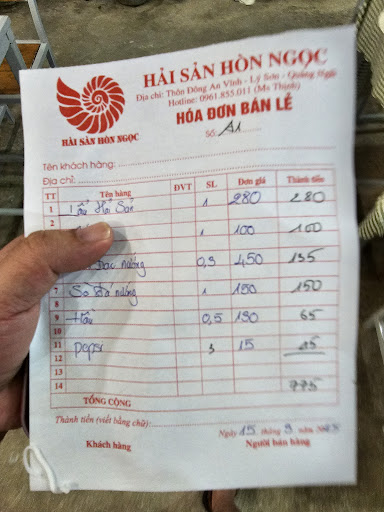 HẢI SẢN HÒN NGỌC
Địa chỉ: Thôn Đông An Vĩnh - Lý Sơn - Quảng Ngãi
Hotline: 0961.855.011 (Ms Thịnh)
HẢI SẢN HÒN NGỌC
HÓA ĐƠN BÁN LẺ
Số: A1
Tên khách hàng:
Địa chỉ:
TT Tên hàng ĐVT SL Đơn giá Thành tiền
1 Lẩu Hải Sản 1 280 280
2 1 100 100
Bạc nướng 0,3 450 135
7 Sò Đá nướng 1 150 150
9 Hàu 0,5 130 65
10
11 pepsi 3 15 45
12
14 775
TỔNG CỘNG
Thành tiền (viết bằng chữ):
Ngày 15 tháng 9 năm
Khách hàng Người bán hàng